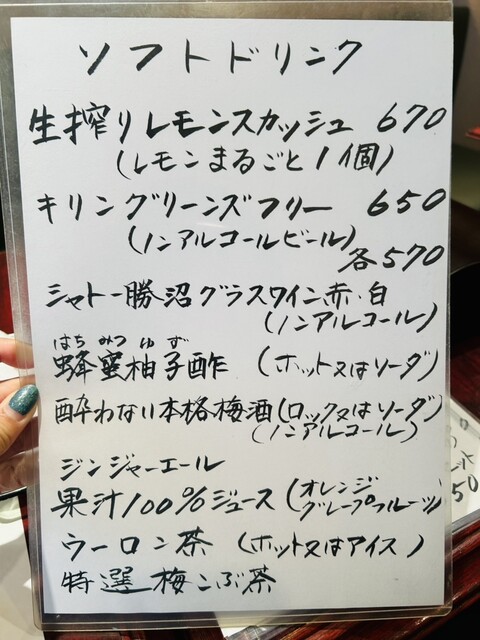 ソフトドリンク
生搾りレモンスカッシュ 670
(レモンまるごと1個)
キリングリーンズフリー 650
(ノンアルコールビール)
各570
シャトー勝沼グラスワイン赤・白
(ノンアルコール)
はち みつ ゆ ず
蜂蜜柚子酢 (ホット又はソーダ)
酔わない本格梅酒(ロック又はソーダ)
(ノンアルコール)
ジンジャーエール
果汁100%ジュース(オレンジ
グレープフルーツ)
ウーロン茶 (ホット又はアイス)
特選梅こぶ茶
50